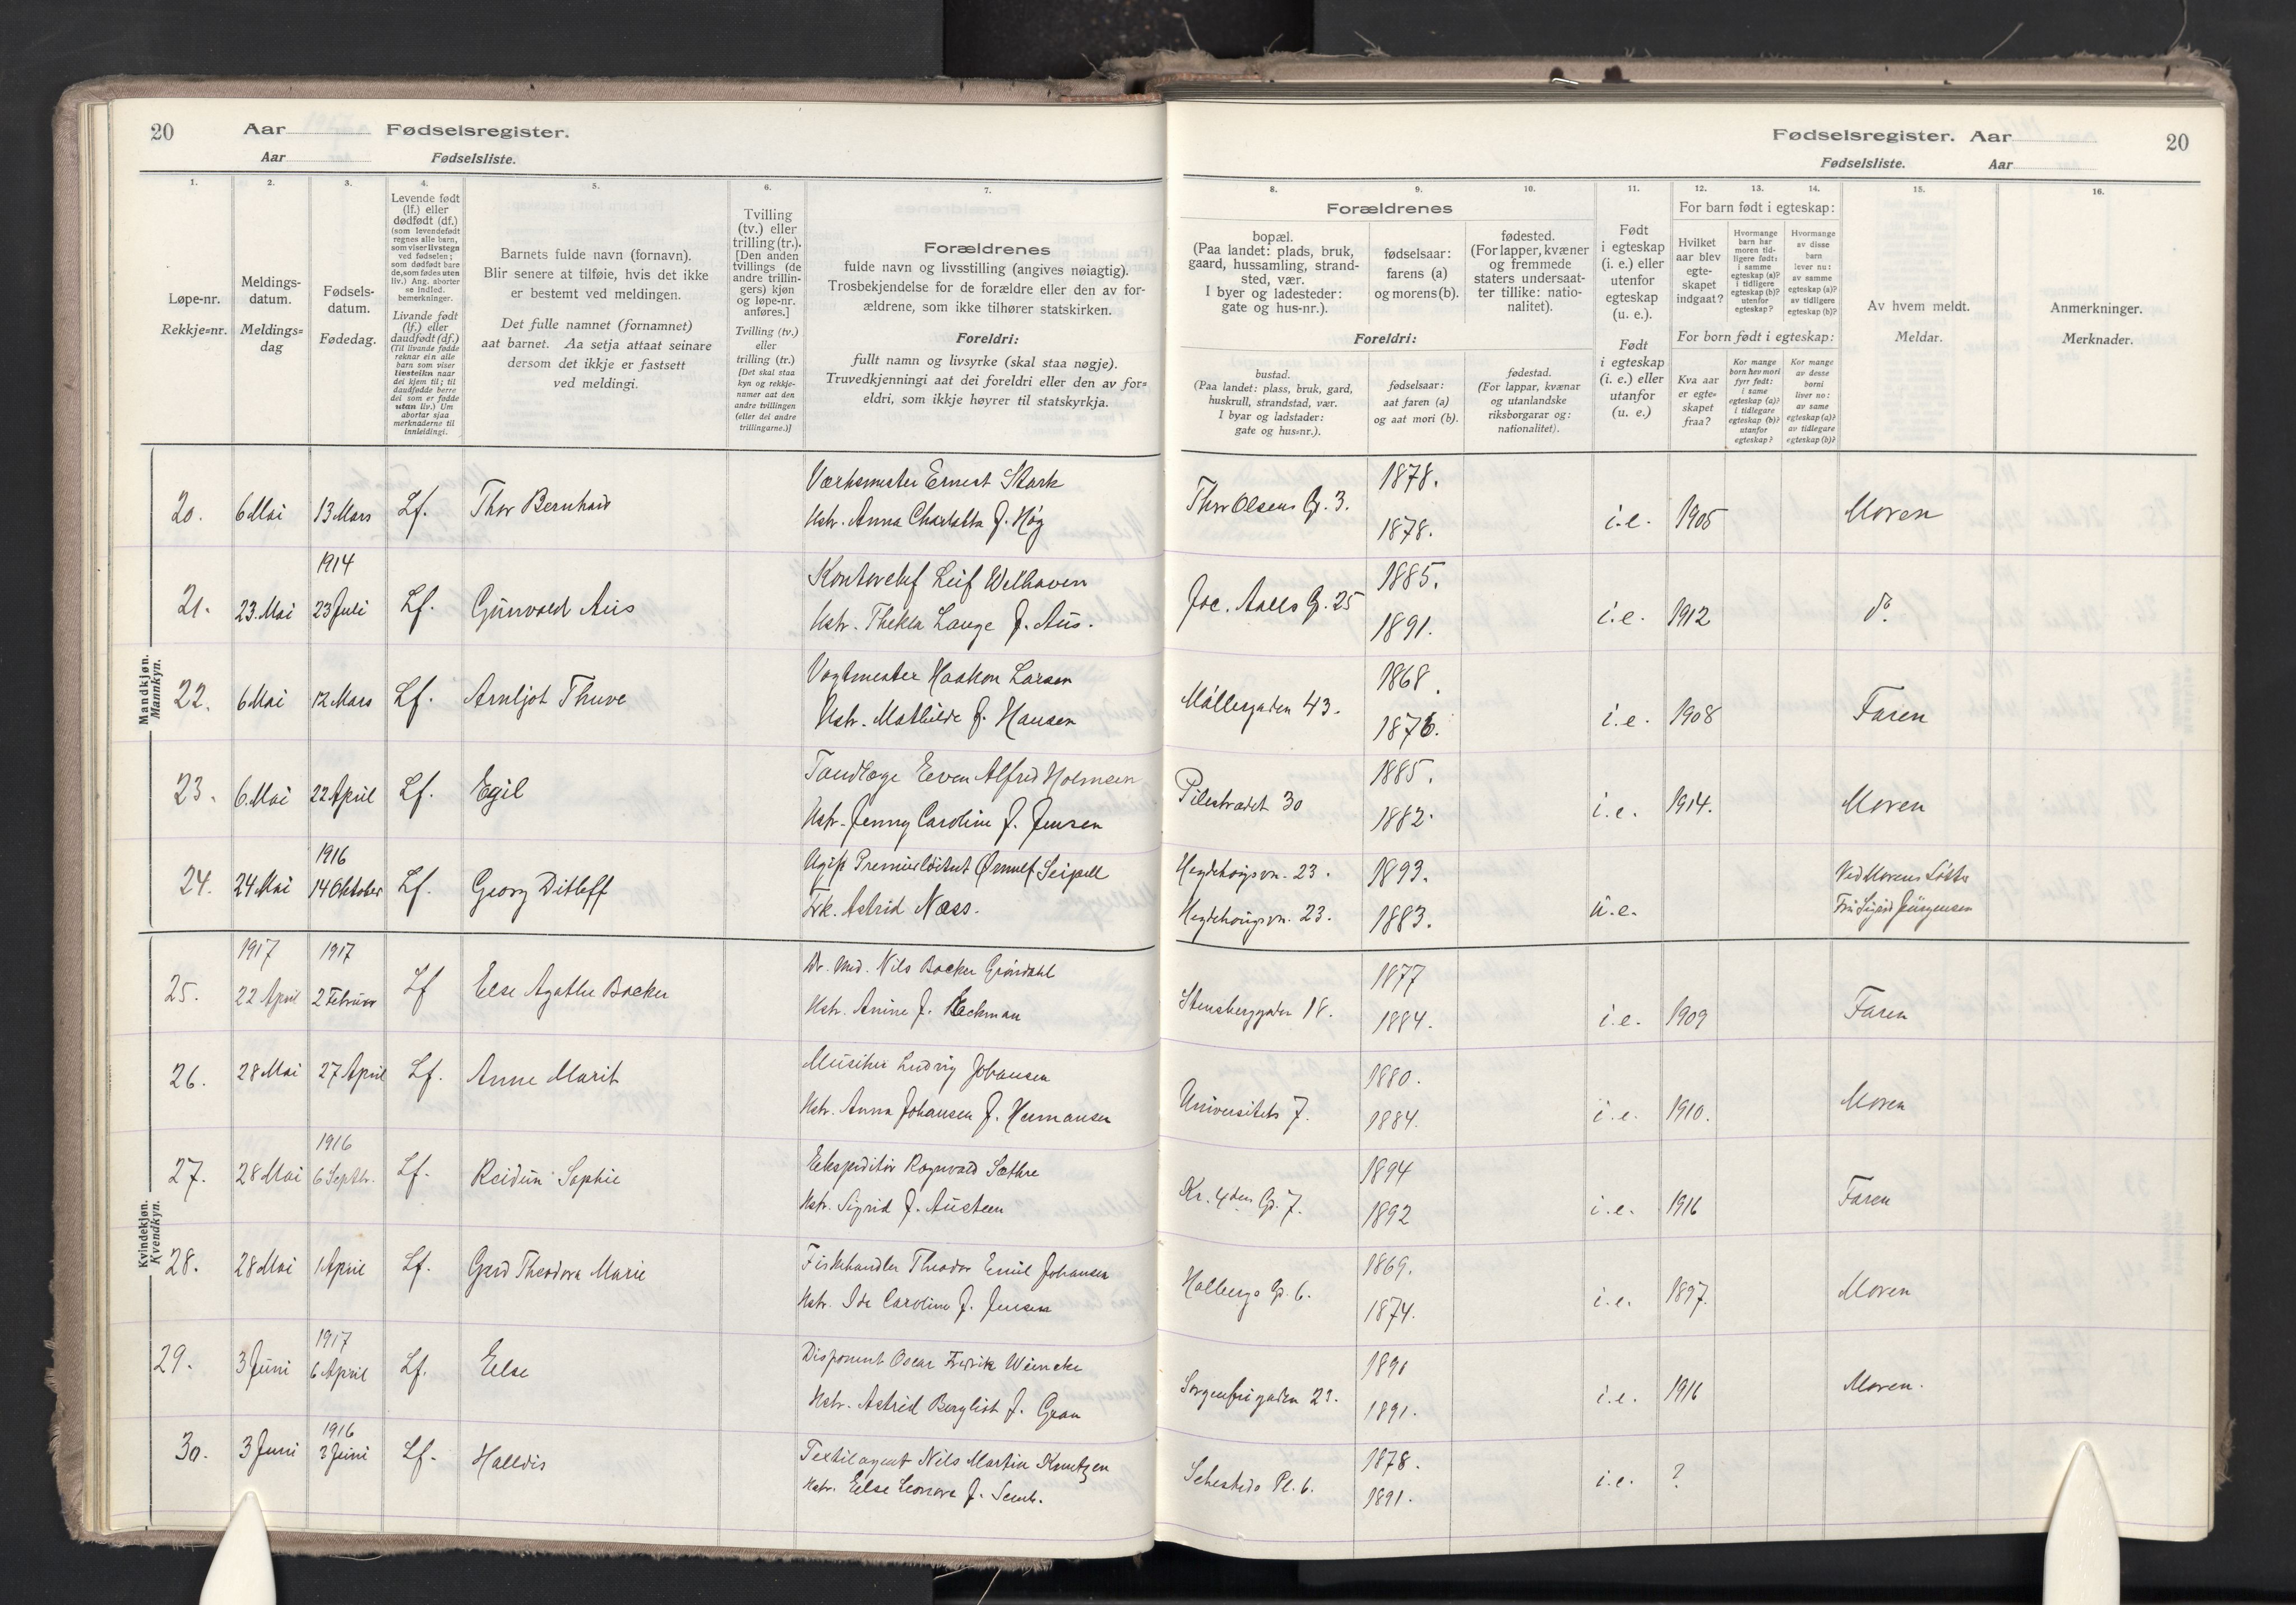 20 Aar Fødselsregister.
Aar Fødselsliste.
1. 2. 3. 4. 5. 6. 7.
Løpe-nr.
Rekkje=nr.
Meldings-
datum.
Meldings=
dag
Fødsels-
datum.
Fødedag.
Levende født
(lf.) eller
dødfødt (df.)
(som levendefødt
regnes alle barn,
som viser livstegn
ved fødselen;
som dødfødt bare
de, som fødes uten
liv.) Ang. aborter
se indled.
bemerkninger.
Livande født
(lf.) eller
daudfødt (df.)
(Til livande fødde
reknar ein alle
barn som viser
livsteikn naar
dei kjem til; til
daudfødde berre
dei som er fødde
utan liv.) Um
abortar sjaa
merknaderne til
innleidingi.
Barnets fulde navn (fornavn).
Blir senere at tilføie, hvis det ikke
er bestemt ved meldingen.
Det fulle namnet (fornamnet)
aat barnet. Aa setja attaat seinare
dersom det ikkje er fastsett
ved meldingi.
Tvilling
(tv.) eller
trilling (tr.).
[Den anden
tvillings (de
andre trillin-
gers) kjøn
og løpe-nr.
anføres.]
Tvilling (tv.)
eller
trilling (tr.)
[Det skal staa
kyn og rekkje-
numer aat den
andre tvillingen
(eller dei andre
trillingarne.)]
Forældrenes
fulde navn og livsstilling (angives nøiagtig).
Trosbekjendelse for de forældre eller den av for-
ældrene, som ikke tilhører statskirken.
Foreldri:
fullt namn og livsyrke (skal staa nøgje).
Truvedkjenningi aat dei foreldri eller den av for=
eldri, som ikkje høyrer til statskyrkja.
Mandkjøn.
Mannkyn.
20. 6 Mai 13 Mars Lf. Thor Bernhard
Værksmester Ernest Stark
Hstr. Anna Charlotta f. Høg
1914
21. 23. Mai 23 Juli Lf. Gunvald Aus
Kontorchef Leif Welhaven
Hstr. Thekla Lange f. Aus.
22. 6 Mai 12 Mars Lf. Arnljot Thuve
Vagtmester Haakon Larsen
Hstr. Mathilde f. Hansen
23. 6 Mai 22 April Lf. Egil
Tandlæge Even Alfred Holmsen
Hstr. Jenny Caroline f. Jensen
1916
24. 24 Mai 14 Oktober Lf. Georg Ditleff
Premierløitnant Ørnulf Seipell
Frk. Astrid Næss.
Kvindekjøn.
Kvendkyn.
1917 1917
25. 22 April 2 Februar Lf Else Agathe Backer
Dr. Med. Nils Backer Grøndahl
Hstr. Anine f. Heckman
26. 28 Mai 27 April Lf. Anne Marit
Musiker Ludvig Johansen
Hstr. Anna Johansen f. Hermansen
1916
27. 28 Mai 6 Septbr. Lf. Reidun Sophie
Ekspeditør Ragnvald Sæthre
Hstr. Sigrid f. Austeen
28. 28 Mai 1 April Lf. Gerd Theodora Marie
Fiskehandler Theodor Emil Johansen
Hstr. Ida Caroline f. Jensen
1917
29. 3 Juni 6 April Lf. Else
Disponent Oscar Fredrik Wiencke
Hstr. Astrid Bergliot f. Gran
1916
30. 3 Juni 3 Juni Lf. Halldis
Textilagent Nils Martin Knutzen
Hstr. Else Leonora f. Semb.
Fødselsregister. Aar 20
Fødselsliste. Aar
8. 9. 10. 11. 12. 13. 14. 15. 16.
Forældrenes
bopæl.
(Paa landet: plads, bruk,
gaard, hussamling, strand-
sted, vær.
I byer og ladesteder:
gate og hus-nr.).
fødselsaar:
farens (a)
og morens (b).
fødested.
(For lapper, kvæner
og fremmede
staters undersaat-
ter tillike: natio-
nalitet).
Foreldri:
bustad.
(Paa landet: plass, bruk, gard,
huskrull, strandstad, vær.
I byar og ladstader:
gate og hus=nr.).
fødselsaar:
aat faren (a)
og aat mori (b).
fødestad.
(For lappar, kvænar
og utanlandske
riksborgarar og:
nationalitet).
Født
i egteskap
(i. e.) eller
utenfor
egteskap
(u. e.).
Født
i egteskap
(i. e.) eller
utanfor
(u. e.)
For barn født i egteskap:
Hvilket
aar blev
egte-
skapet
indgaat?
Hvormange
barn har
moren tid-
ligere født:
i samme
egteskap (a)?
i tidligere
egteskap (b)?
utenfor
egteskap?
Hvormange
av disse
barn
lever nu:
av samme
egteskap (a)?
av tidligere
egteskap (b)?
For born født i egteskap:
Kva aar
er egte=
skapet
fraa?
Kor mange
born hev mori
fyrr født:
i same
egteskap (a)?
i tidlegare
egteskap (b)?
utanfor
egteskap?
Kor mange
av desse
borni
liver no:
av same
egteskap (a)?
av tidlegare
egteskap (b)?
Av hvem meldt.
Meldar.
Anmerkninger.
Merknader.
1878.
Thor Olsens G. 3. i.e. 1905 Moren
1878.
1885.
Joc. Aalls G. 25 i.e. 1912 do.
1891.
1868.
Møllergaden 43. i.e. 1908 Faren
1876.
1885.
Pilestrædet 30 i.e. 1914. Moren
1882.
Hegdehaugsvn. 23. 1893. Ved Morens Søster
Hegdehaugsvn. 23. 1883. u.e. Fru Sigrid Jürgensen
1877
Stensberggaden 18. i.e. 1909 Faren
1884.
1880.
Universitets 7. i.e. 1910. Moren
1884.
1894
Kr. 4des G. 7. i.e. 1916 Faren
1892
1869.
Holbergs G. 6. i.e. 1897. Moren
1874.
1890
Sorgenfrigaden 23. i.e. 1916 Moren.
1891.
1878.
Sehesteds Pl. 6. i.e. ?
1891.